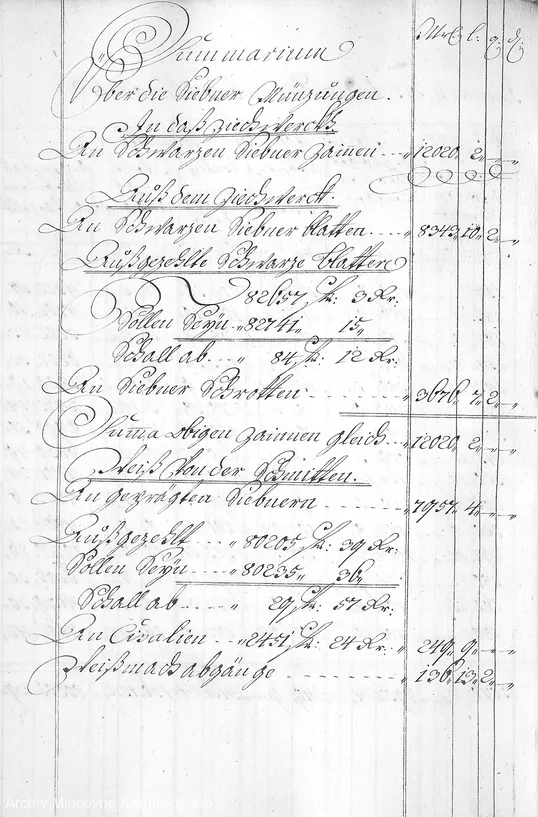 Mrk: l: q: d:
Summarium
Über die Siebner Münzungen.
In daß Zieckwerckh.
An Schwarzen Siebner Zainen - - „ 12020„ 2„ —„ —„
Auß dem Zieckwerck.
An Schwarzen Siebner blatten. - - - „ 8343„ 10„ 2„ —„
Außgezehlte Schwarze blatten
82657 fl: 3 Kr:
Sollen Seyn - „ 82741„ 15„
Schall ab - - „ 84 fl: 12 Kr:
An Siebner Schrotten - - - „ 3676„ 7„ 2„ —„
Summa obigen Zainen gleich - - „ 12020„ 2„ —„ —„
Weiß Von der Schmitten.
An geprägten Siebnern - - - - - „ 7957„ 4„ —„ —„
Außgezehlt - - - „ 80205 fl: 39 Kr:
Sollen Seyn - - „ 80235„ 36„
Schall ab - - - - „ 29 fl: 57 Kr:
An Cisalien - - „ 2451 fl: 24 Kr: „ 249„ 9„ —„ —„
Weißmach abgänge - - - - - - - „ 136„ 13„ 2„ —„
Archiv Mincovne Kremnica, š.p.